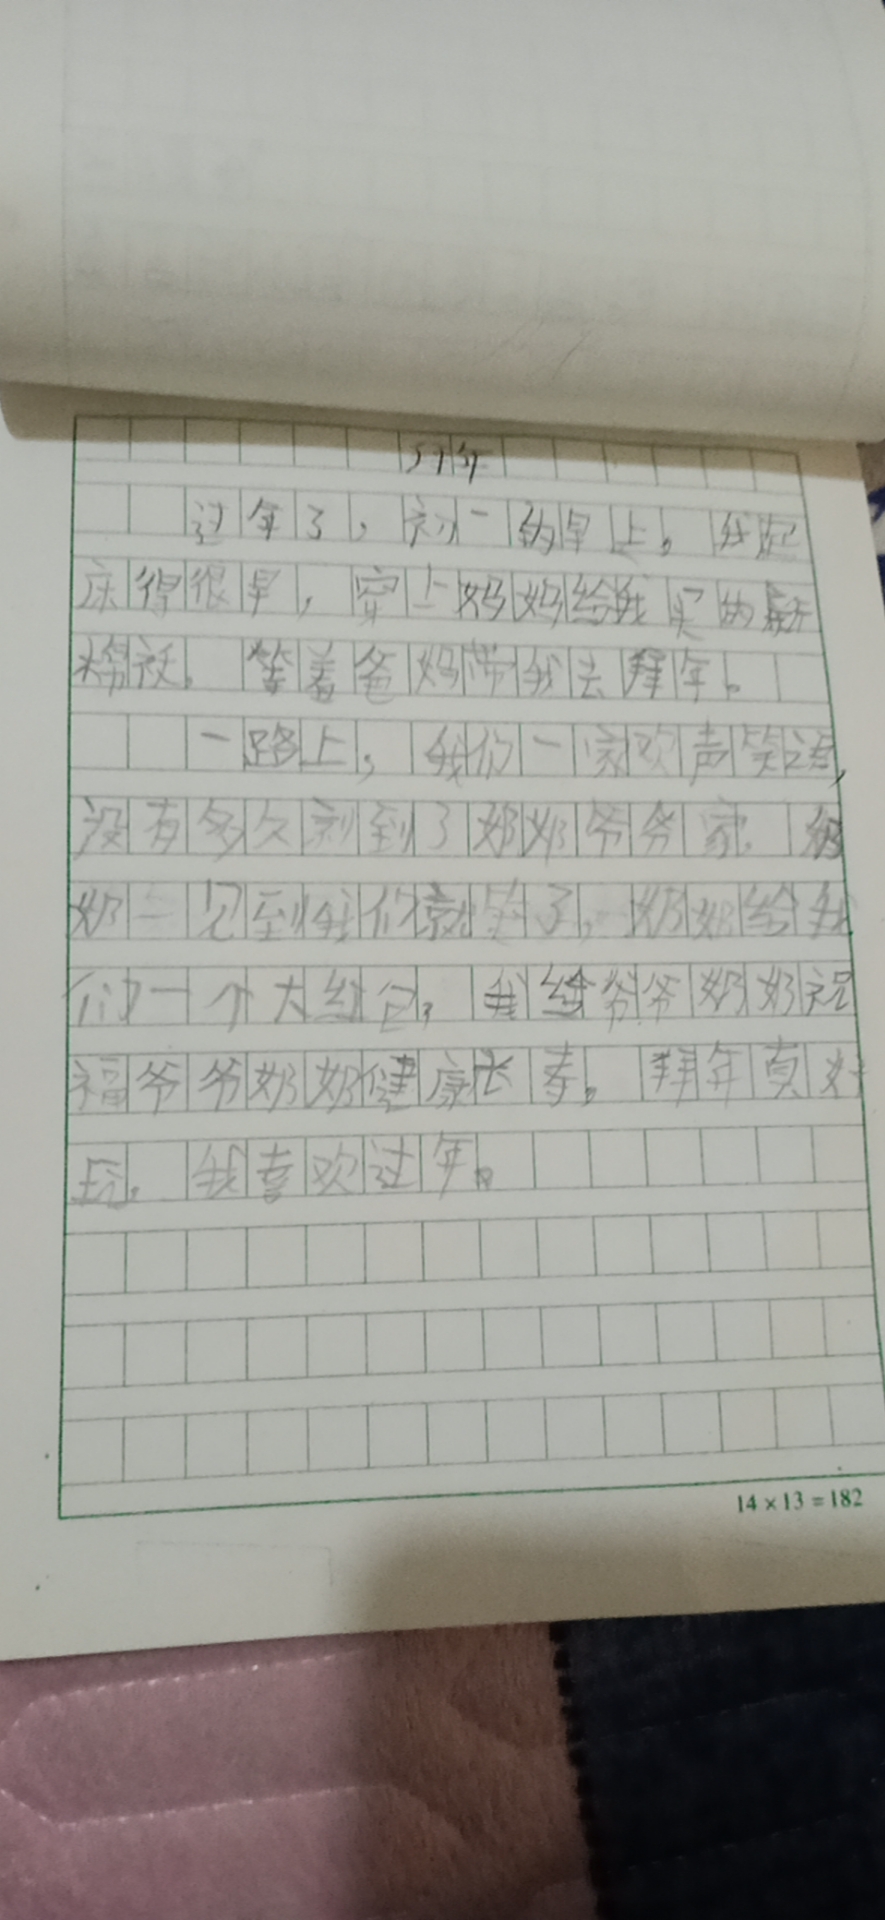 过年
过年了，初一的早上。我起
床得很早，穿上妈妈给我买的新
棉袄。等着爸妈带我去拜年。
一路上，我们一家欢声笑语，
没有多久就到了奶奶爷爷家。奶
奶一见到我们就笑了，奶奶给我
们一个大红包，我给爷爷奶奶祝
福爷爷奶奶健康长寿。拜年真好
玩。我喜欢过年。
14×13=182